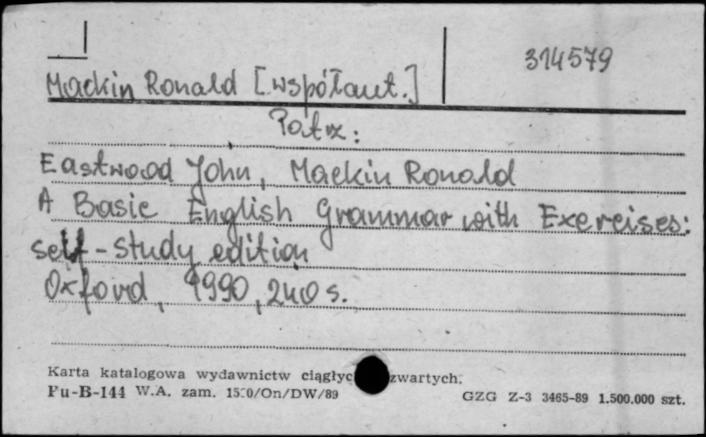 314579
Mackin Ronald [współaut.]
Patrz:
Eastwood John, Mackin Ronald
A Basic English Grammar with Exercises:
self-study edition
Oxford, 1990, 240 s.
Karta katalogowa wydawnictw ciągłyc zwartych.
Pu-B-144 W.A. zam. /On/DW/89
GZG Z-3 3465-89 1.500.000 szt.